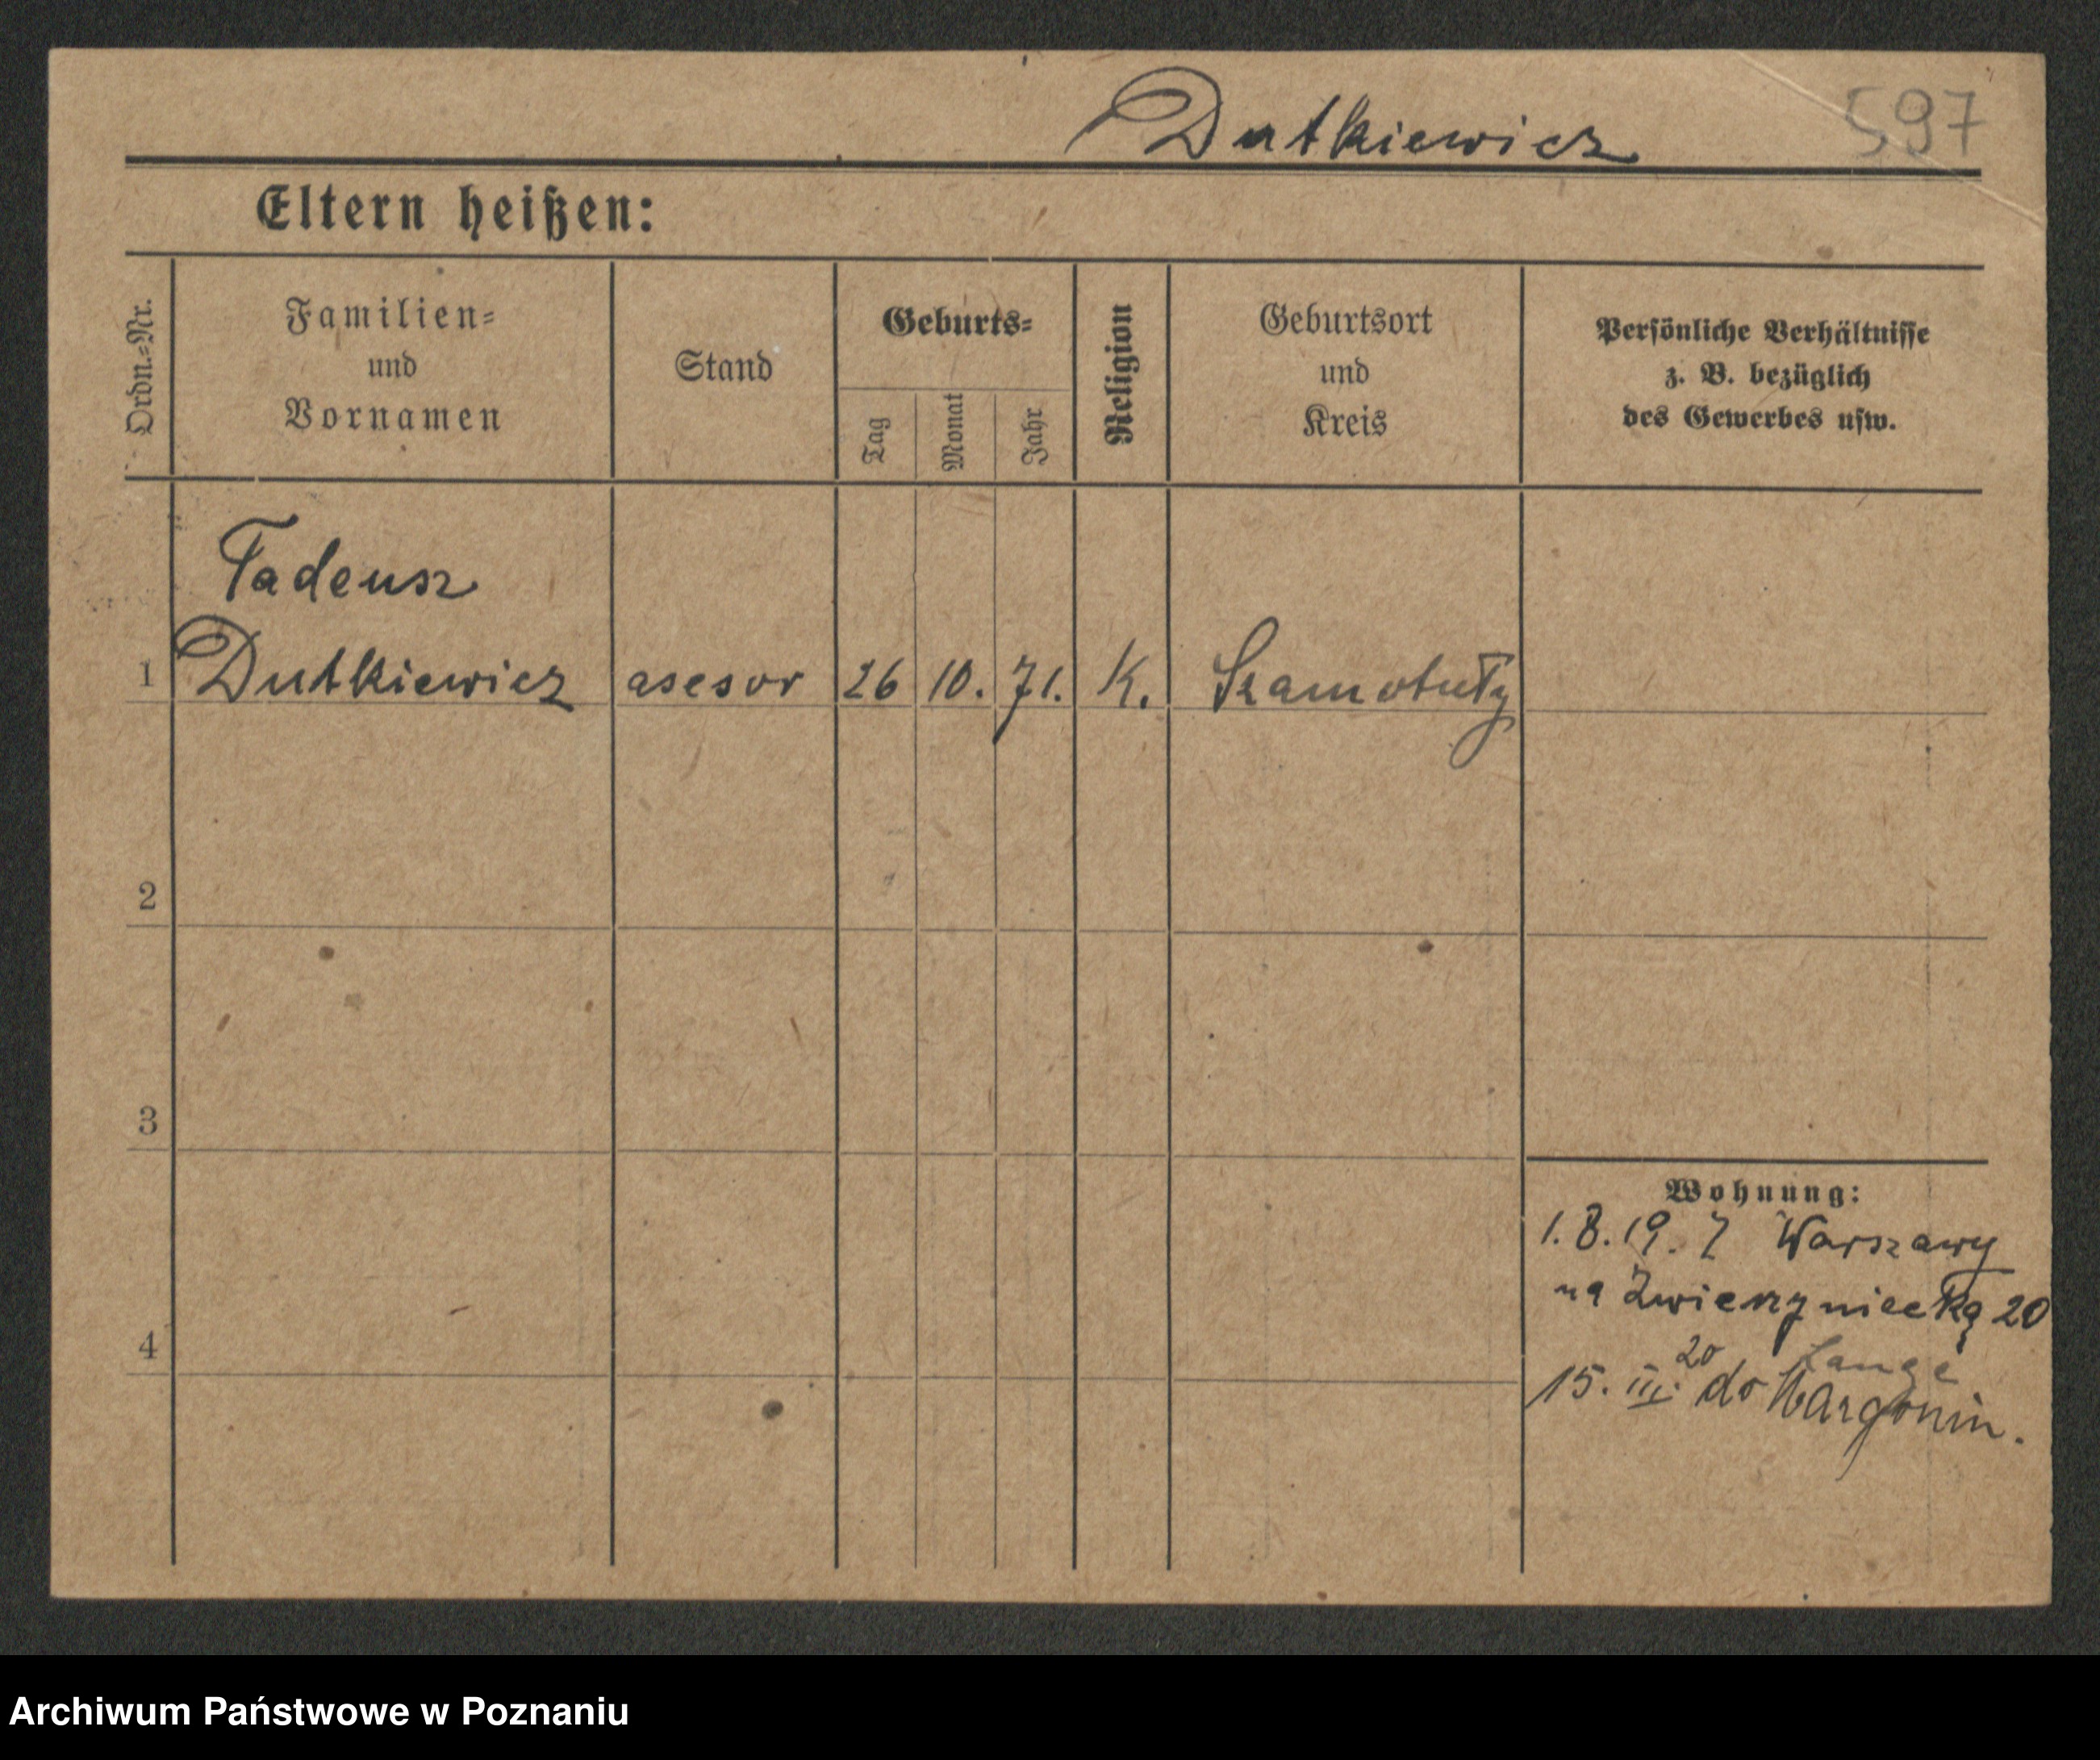 Dutkiewicz 597
Eltern heißen:
Ordn.=Nr.
Familien=
und
Vornamen
Stand
Geburts=
Tag
Monat
Jahr
Religion
Geburtsort
und
Kreis
Persönliche Verhältnisse
z. B. bezüglich
des Gewerbes usw.
Tadeusz
1 Dutkiewicz asesor 26 10. 71. K. Szamotuły
2
3
4
Wohnung:
1.8.19. Z Warszawy
na Zwierzyniecką 20
Lange
15. III. 20 do Margonin.
Archiwum Państwowe w Poznaniu